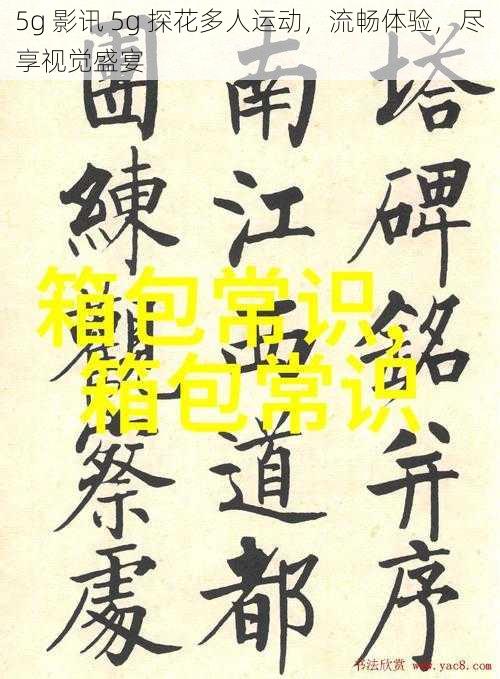 5g 影讯 5g 探花多人运动，流畅体验，尽
享视觉盛宴
塔碑銘并序
南江西道都
團練觀察處
箱包常识，
箱包常识
书法欣赏 www.yac8.com